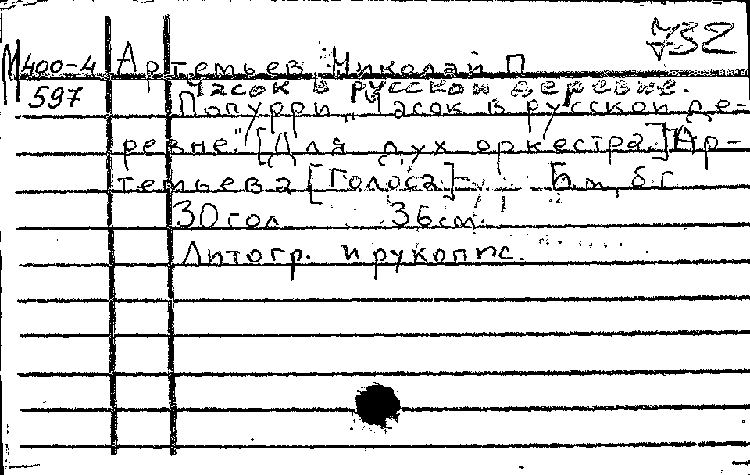 732
М400-4 Артемьев Николай П
597 Часок в русской деревне.
Попурри „Часок в русской де-
ревне." [Для дух оркестра.] Ар-
темьева [Голоса]- Б м, б г
30 гол 36 см.
Литогр. и рукопис.